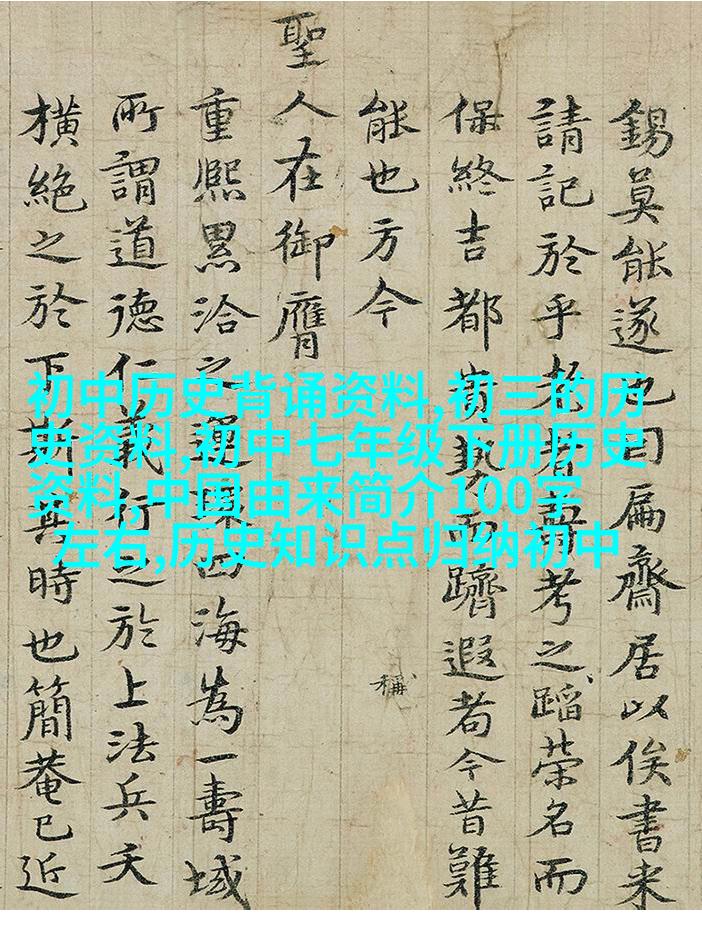 錫莫能遂也扁齋居以俟書来
請記於乎老者壽考之蹈榮名而
保終吉都貴勢而躋遐耈今昔難
能也方今
稱
聖人在御膺
重熙累洽之運四海為一壽域
所謂道德仁義行之於上法兵夭
橫絕之於下斯其時也簡菴已近
初中历史背诵资料,初三的历
史资料,初中七年级下册历史
资料,中国由来简介100字
左右,历史知识点归纳初中